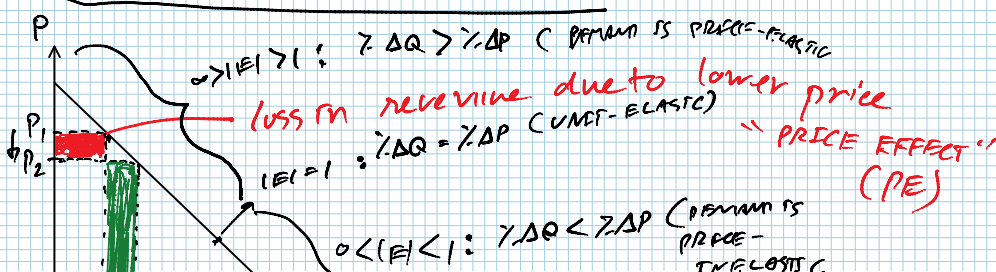 P
∞>|E|>1 : %ΔQ > %ΔP ( DEMAND IS PRICE-ELASTIC
loss in revenue due to lower price
P₁
"PRICE EFFECT"
↓P₂
|E|=1 : %ΔQ = %ΔP (UNIT-ELASTIC)
(PE)
0<|E|<1 : %ΔQ < %ΔP (DEMAND IS
PRICE-
INELASTIC